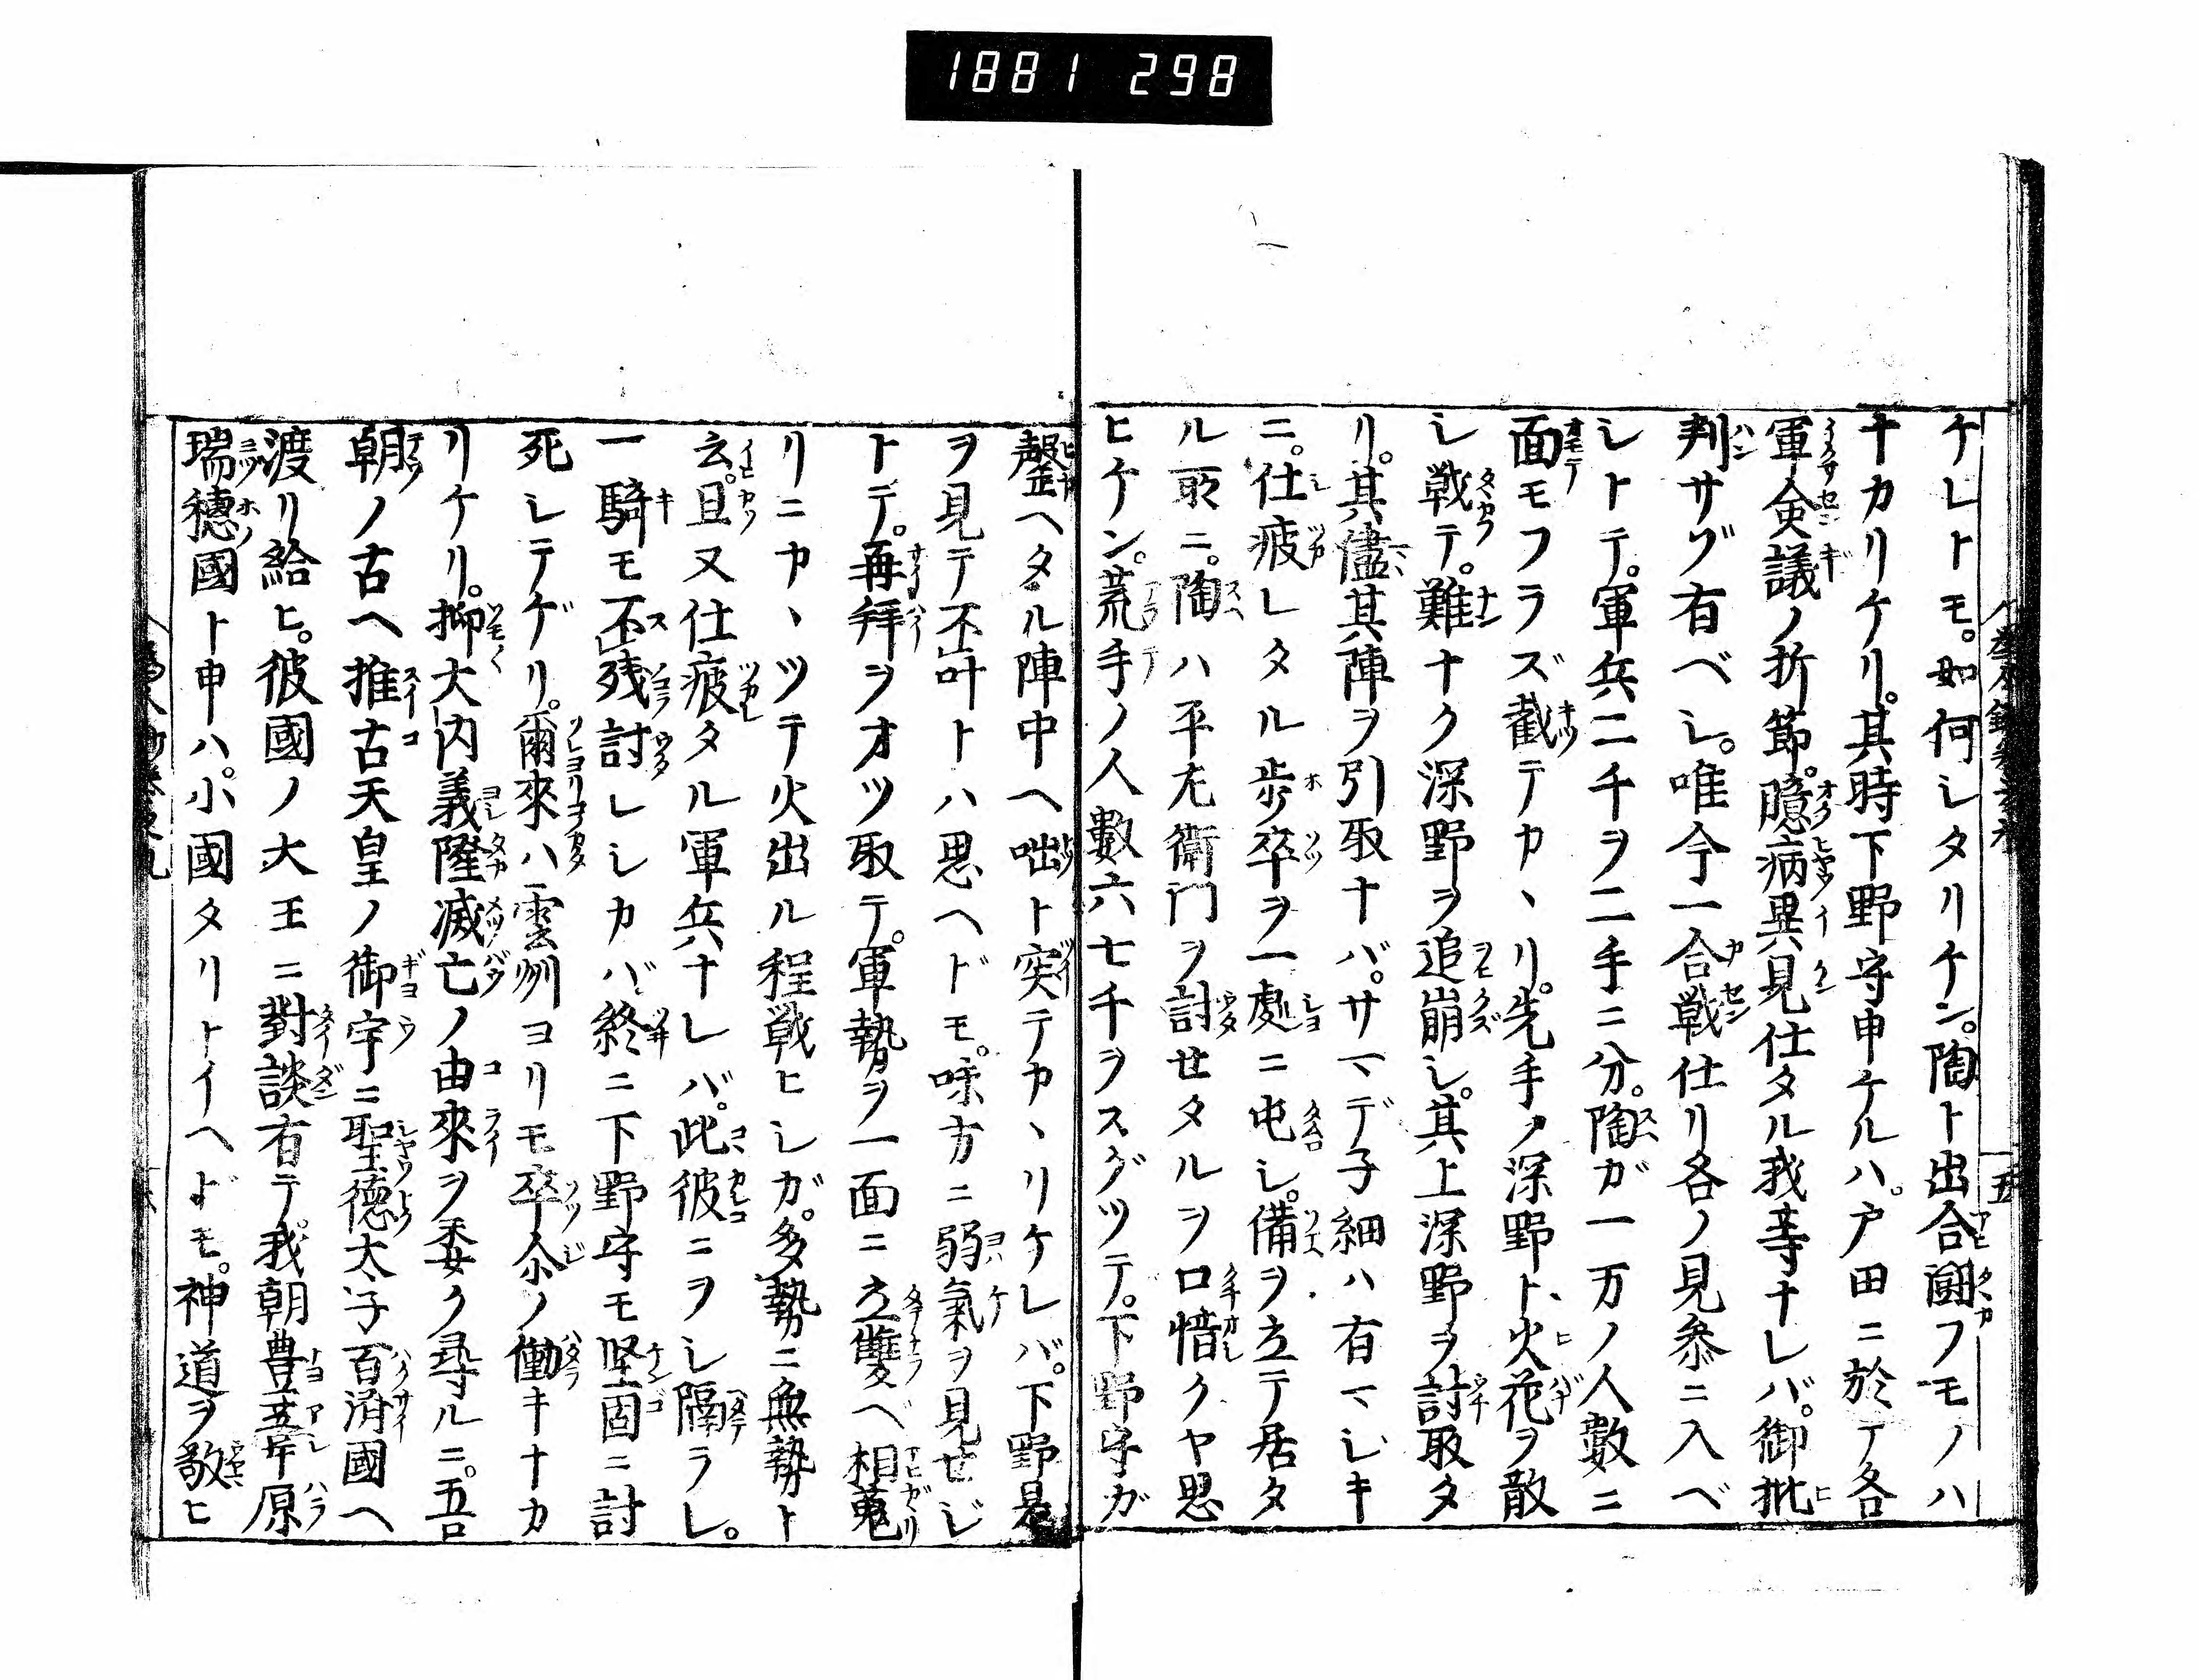 1881 298
ケレトモ。如何シタリケン。陶ト出合闘フモノハ
ナカリケリ。其時下野守申ケルハ。戸田ニ於テ各
軍僉議ノ折節。臆病異見仕タル我等ナレバ。御批
判サゾ有ベシ。唯今一合戦仕リ各ノ見参ニ入ベ
シトテ。軍兵二千ヲ二手ニ分。陶ガ一万ノ人數ニ
面モフラズ截テカヽリ。先手ノ深野ト火花ヲ散
シ戦テ。難ナク深野ヲ追崩シ。其上深野ヲ討取タ
リ。其儘其陣ヲ引取ナバ。サマデ子細ハ有マジキ
ニ。仕疲レタル歩卒ヲ一處ニ屯シ。備ヲ立テ居タ
ル取ニ。陶ハ平左衛門ヲ討セタルヲ口惜クヤ思
ヒケン。荒手ノ人數六七千ヲスグツテ。下野守ガ
罄ヘタル陣中ヘ咄ト突テカヽリケレバ。下野是
ヲ見テ不叶トハ思ヘドモ。味方ニ弱氣ヲ見セジ
トテ。再拜ヲオツ取テ。軍勢ヲ一面ニ立雙ベ相蒐
リニカヽツテ火出ル程戦ヒシガ。多勢ニ無勢ト
云。且又仕疲タル軍兵ナレバ。此彼ニヲシ隔ラレ。
一騎モ不残討レシカバ終ニ下野守モ堅固ニ討
死シテゲリ。爾來ハ雲州ヨリモ卒尒ノ働キナカ
リケリ。抑大内義隆滅亡ノ由來ヲ委ク尋ルニ。吾
朝ノ古ヘ推古天皇ノ御宇ニ聖徳太子百済國ヘ
渡リ給ヒ。彼國ノ大王ニ對談有テ我朝豊葦原
瑞穂國ト申ハ。小國タリトイヘドモ。神道ヲ敬ヒ